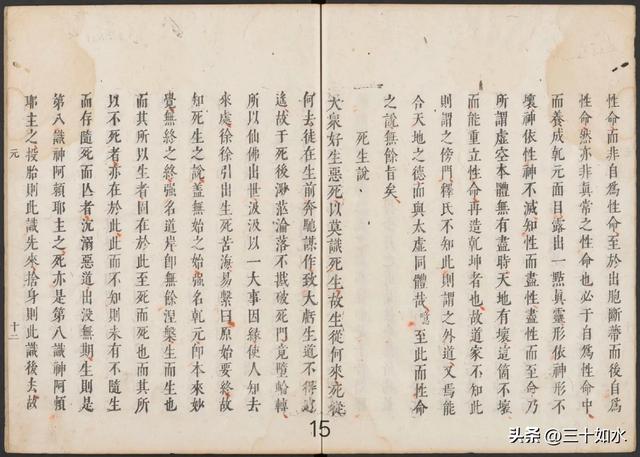 性命而非自爲性命至於出胞斷帶而後自爲
性命然亦非眞常之性命也必于自爲性命中
而養成乾元面目露出一點眞靈形依神形不
壞神依性神不滅知性而盡性盡性而至命乃
所謂虛空本體無有盡時天地有壞這箇不壞
而能重立性命再造乾坤者也故道家不知此
則謂之傍門釋氏不知此則謂之外道又焉能
合天地之德而與太虛同體哉噫至此而性命
之說無餘旨矣
死生說
大衆好生惡死以莫識死生故生從何來死從
何去徒在生前奔馳謀作致大虧生道不得
逃故于死後渺茫淪落不戡破死門竟墮輪轉
所以仙佛出世汲汲以一大事因緣使人知去
來處徐徐引出生死苦海易繫曰原始要終故
知死生之說蓋無始之始強名乾元卽本來妙
覺無終之終強名道岸卽無餘涅槃生而生也
而其所以生者固在於此至死而死也而其所
以不死者亦在於此此而不知則未有不隨生
而存隨死而亾者沉溺惡道出沒無期生則是
第八識神阿賴耶主之死亦是第八識神阿賴
耶主之投胎則此識先來捨身則此識後去故
元 十二
15
头条 @三十如水